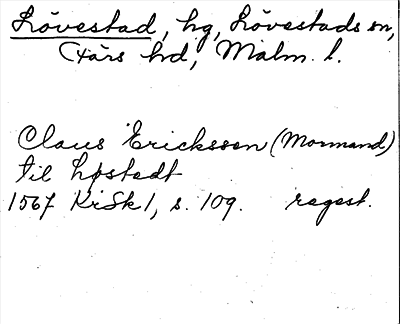 Lövestad, hg, Lövestads sn,
Färs hd, Malm. l.
Claus Ericksson (Mormand)
til Løstedt
1567 KrSk1, s. 109. regest.